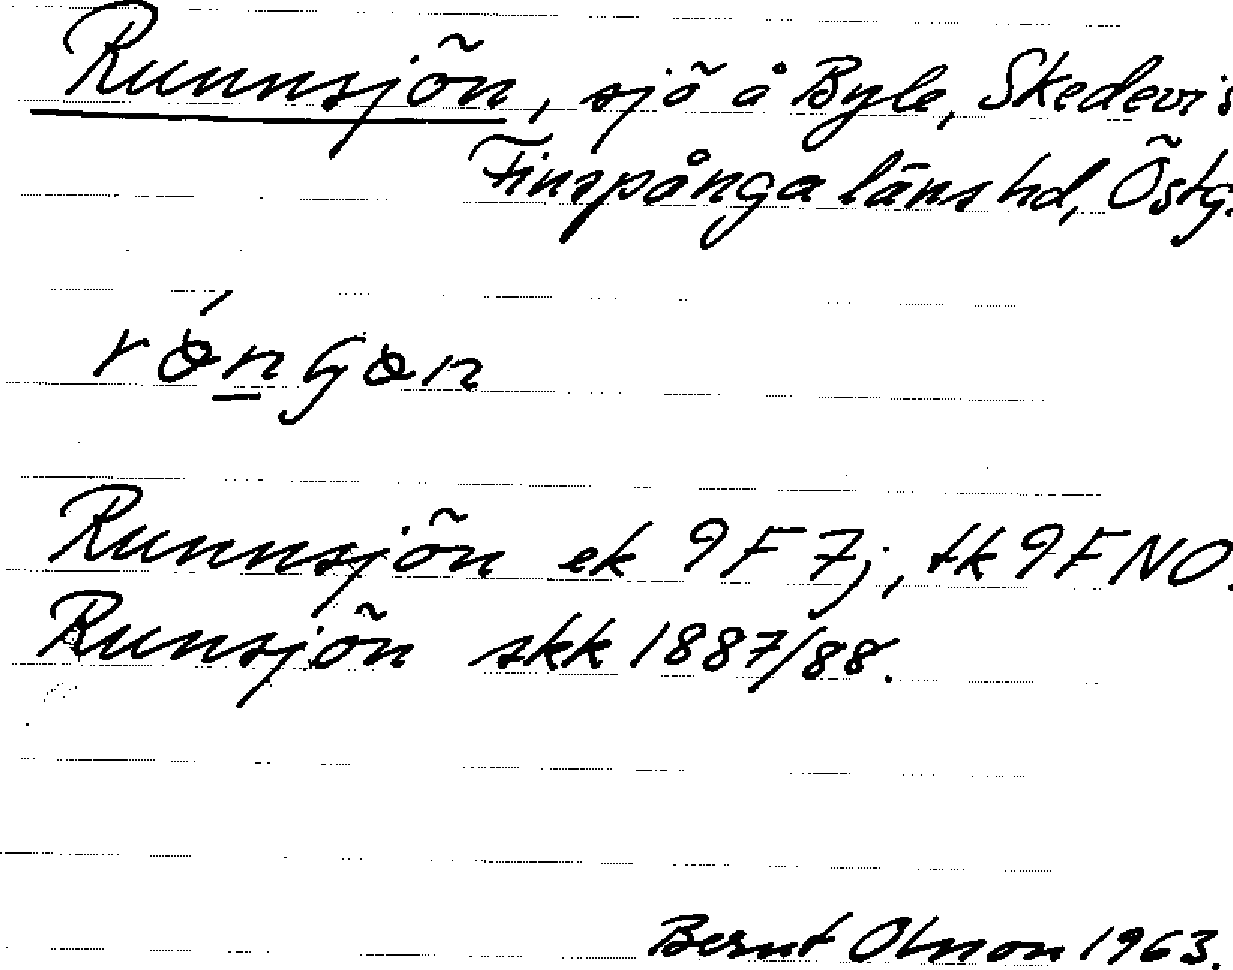 Runnsjön, sjö å Byle, Skedevi s
Finspånga läns hd, Östg.
Runnsjön ek 9F 7j, tk 9F NO.
Runsjön skk 1887/88.
Bernt Olsson 1963.